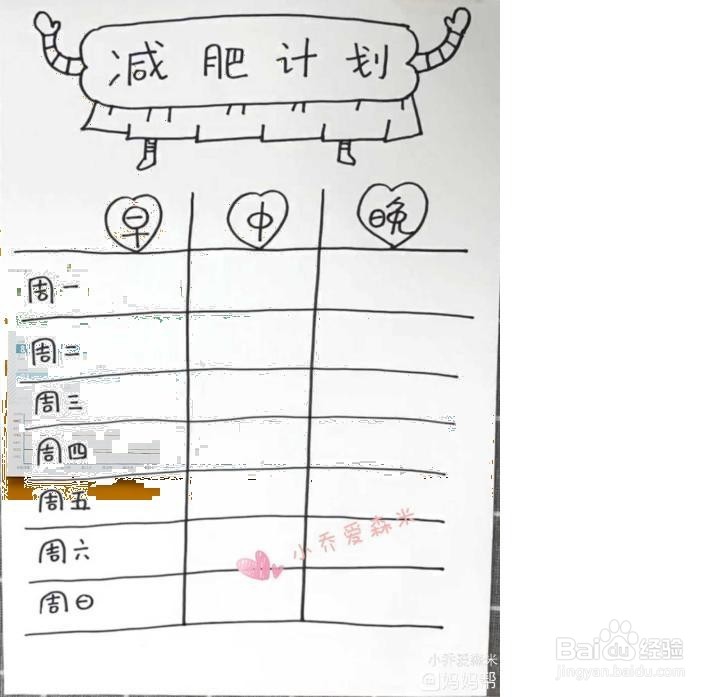 减肥计划
早 中 晚
周一
周二
周三
周四
周五
周六
周日
小乔爱森米
小乔爱森米
@妈妈帮
Baidu经验
jingyan.baidu.com